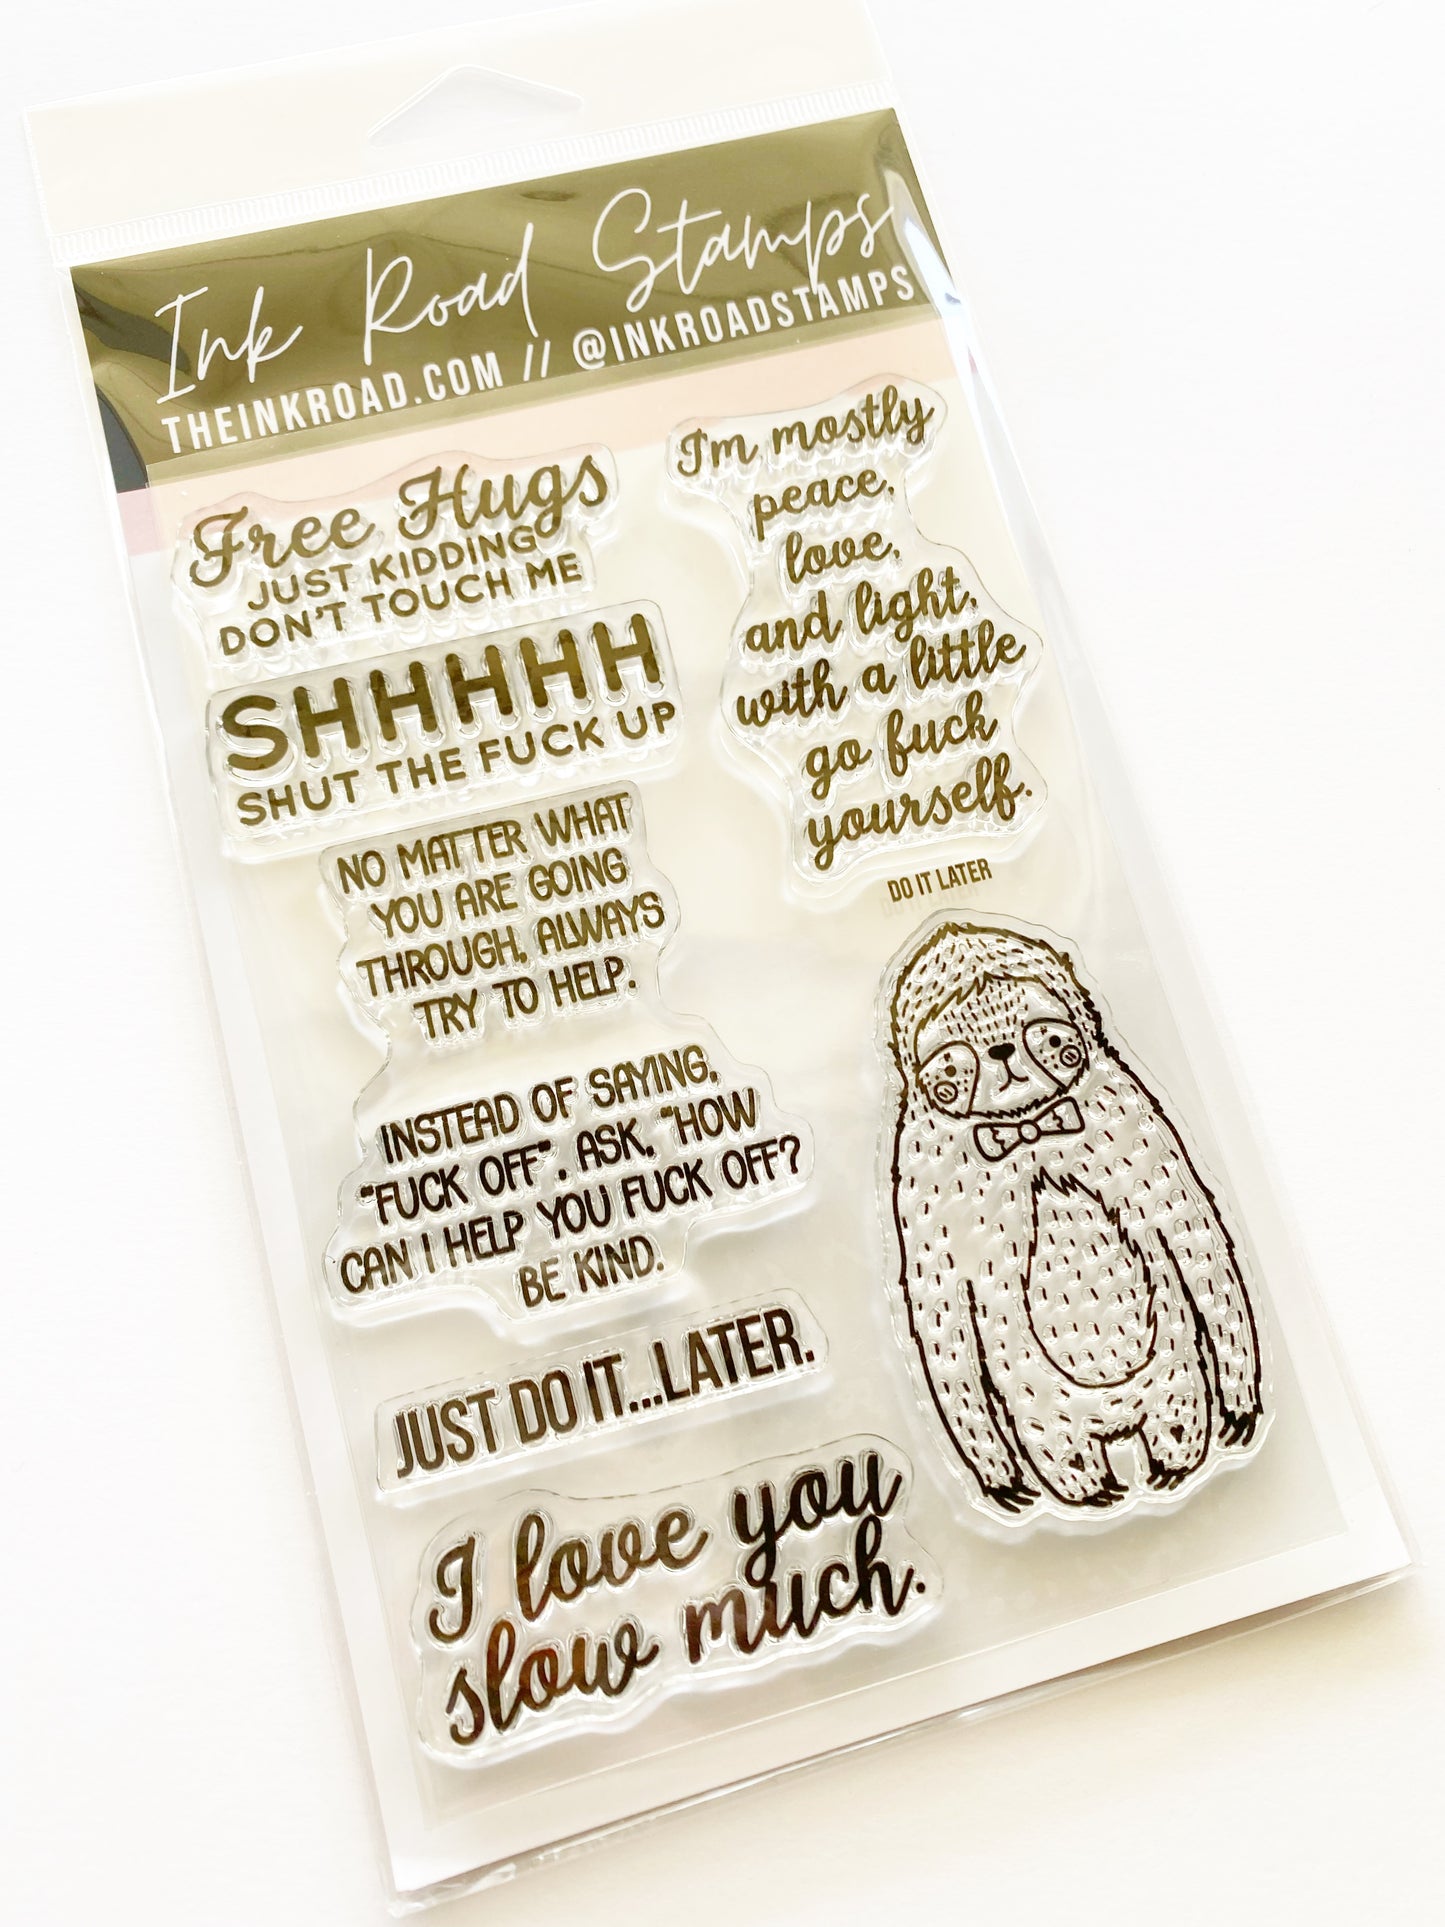 Ink Road Stamps
THEINKROAD.COM // @INKROADSTAMPS
Free Hugs
JUST KIDDING
DON'T TOUCH ME
SHHHHH
SHUT THE FUCK UP
NO MATTER WHAT
YOU ARE GOING
THROUGH, ALWAYS
TRY TO HELP.
INSTEAD OF SAYING,
"FUCK OFF", ASK, "HOW
CAN I HELP YOU FUCK OFF?
BE KIND.
JUST DO IT...LATER.
I love you
slow much.
I'm mostly
peace,
love,
and light,
with a little
go fuck
yourself.
DO IT LATER